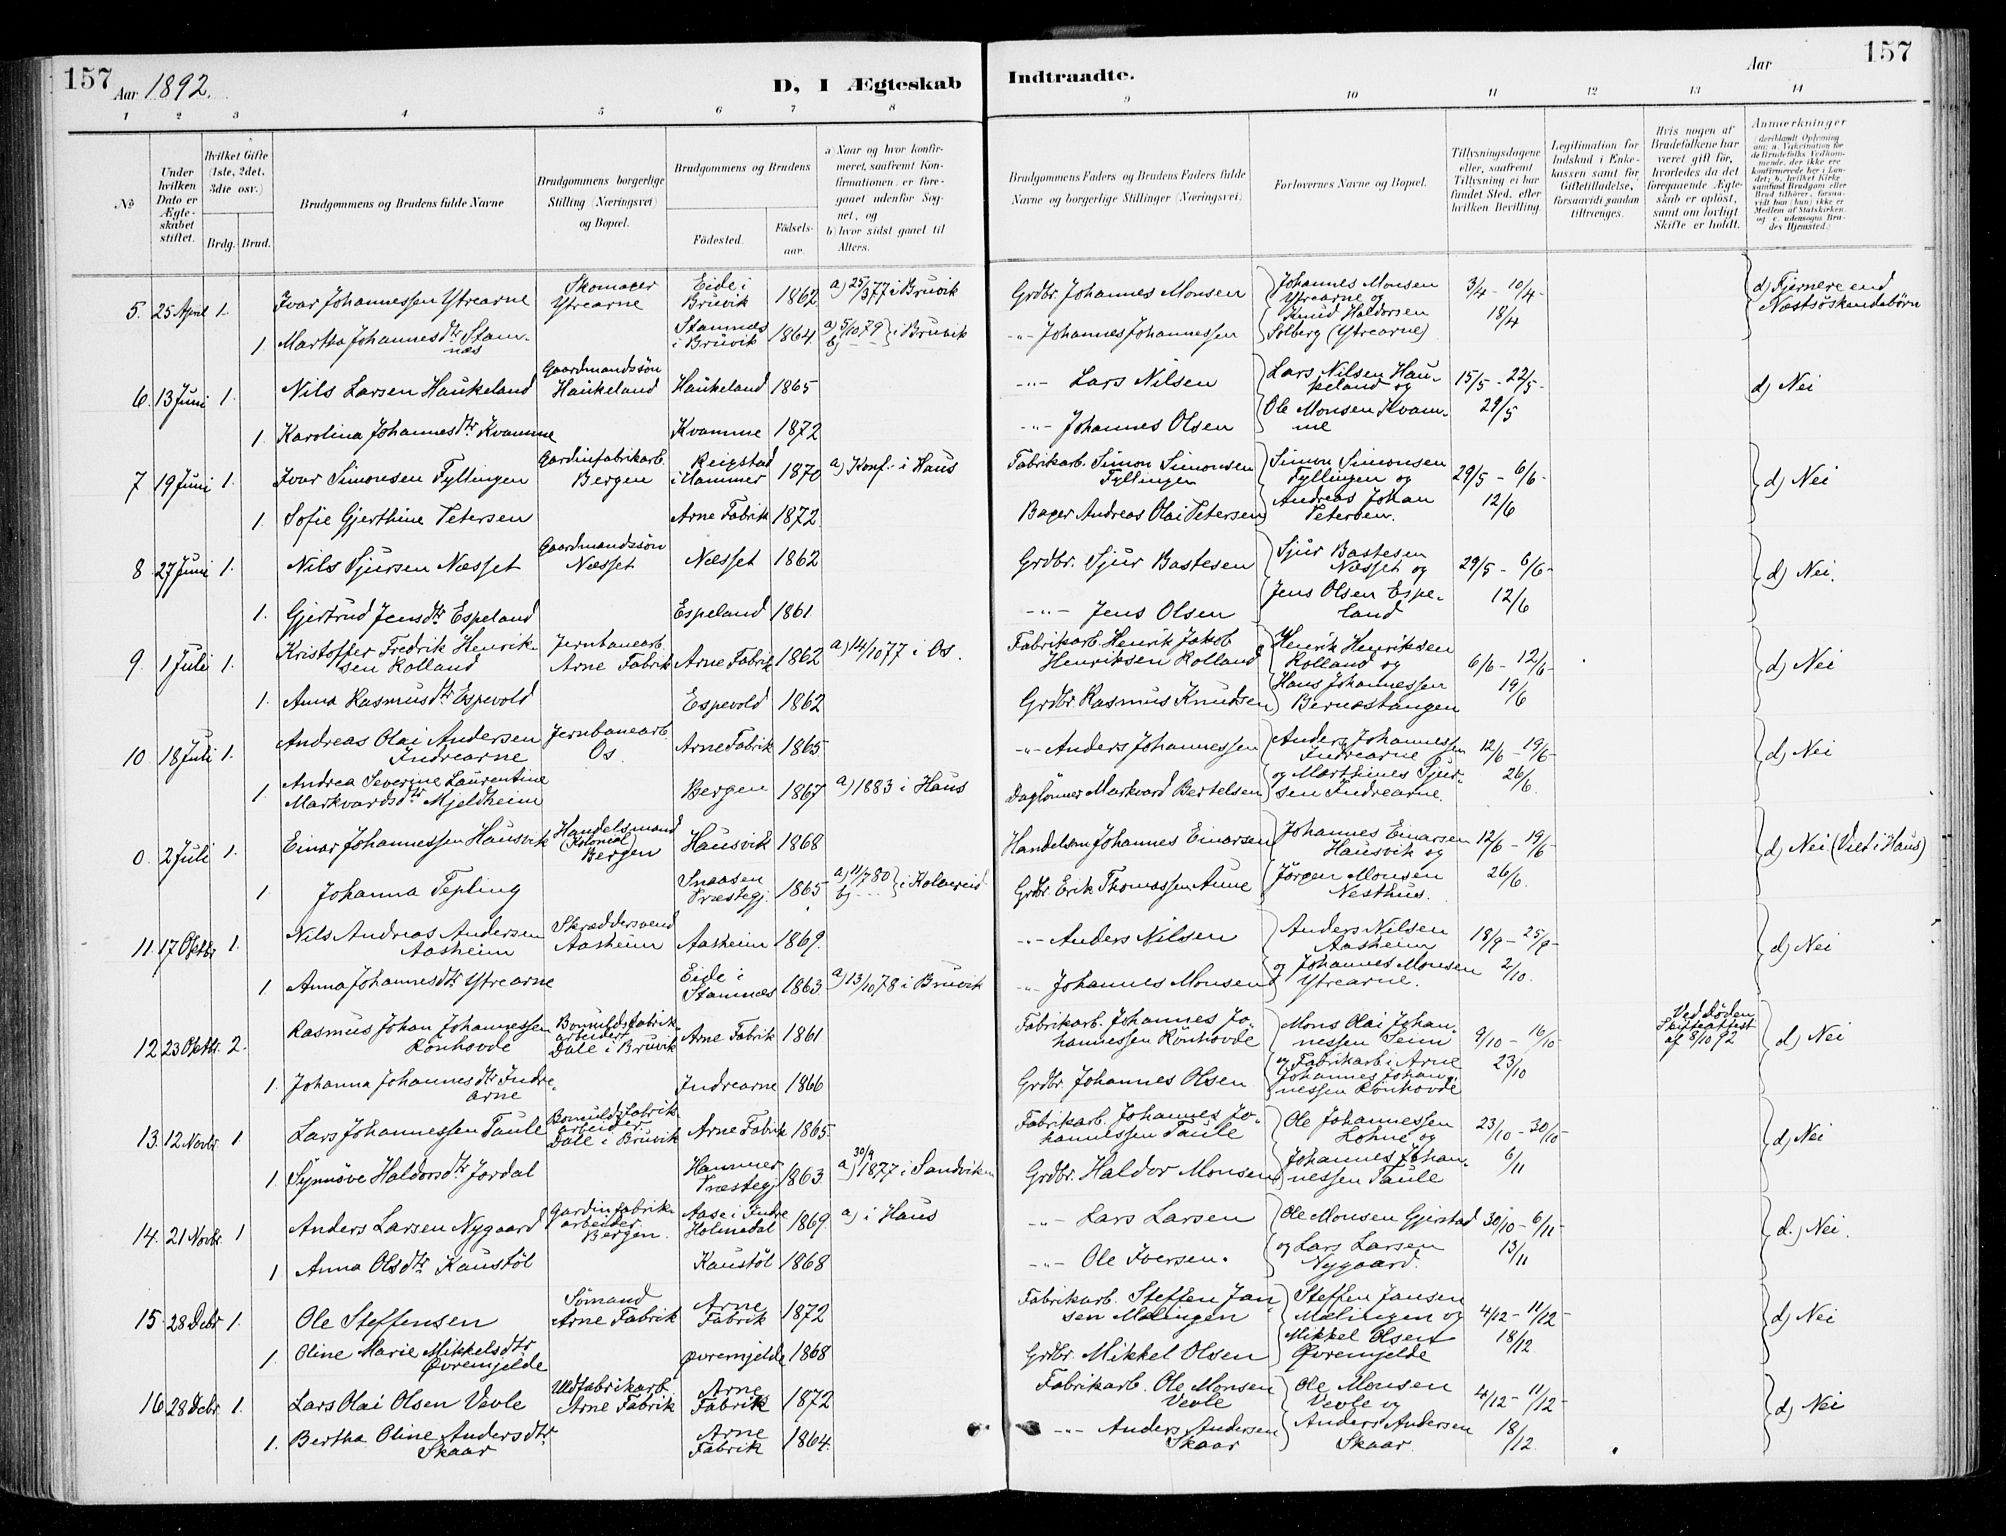 157 Aar 1892. D, I Ægteskab Indtraadte. Aar 157
1 2 3 4 5 6 7 8 9 10 11 12 13 14
№
Under hvilken Dato er Ægteskabet stiftet.
Hvilket Gifte (1ste, 2det, 3die osv.)
Brdg. Brud.
Brudgommens og Brudens fulde Navne
Brudgommens borgerlige Stilling (Næringsvei) og Bopæl.
Brudgommens og Brudens
Födested. Födselsaar.
a) Naar og hvor konfirmeret, saafremt Konfirmationen er foregaaet udenfor Sognet, og
b) hvor sidst gaaet til Alters.
Brudgommens Faders og Brudens Faders fulde Navne og borgerlige Stillinger (Næringsvei)
Forlovernes Navne og Bopæl.
Tillysningsdagene eller, saafremt Tillysning ei har fundet Sted, efter hvilken Bevilling.
Legitimation for Indskud i Enkekassen samt for Giftetilladelse, forsaavidt saadan tiltrænges.
Hvis nogen af Brudefolkene har været gift för, hvorledes da det foregaaende Ægteskab er oplöst, samt om lovligt Skifte er holdt.
Anmærkninger
5. 25 April 1. Ivar Johannessen Ytrearne Skomager Ytrearne Eide i Bruvik 1862 a) 25/3 77 i Bruvik Grdbr. Johannes Monsen Johannes Monsen Ytrearne og 3/4 - 10/4 - d) Fjernere end Næstsöskendebörn
1 Martha Johannesdtr Stamnæs Stamnæs i Bruvik 1864. a) 5/10 79 b) -- i Bruvik -"- Johannes Johannessen Knud Haldorsen Solberg (Ytrearne) 18/4
6. 13 Juni 1. Nils Larsen Haukeland Gaardmandssön Haukeland Haukeland 1865 -"- Lars Nilsen Lars Nilsen Haukeland og 15/5 - 22/5 - d) Nei
1. Karolina Johannesdtr Kvamme Kvamme 1872 -"- Johannes Olsen Ole Monsen Kvamme 29/5
7 19 Juni 1. Ivar Simonsen Fyllingen Gardinfabrikarb. Bergen Reigstad i Hammer 1870 a) Konf. i Haus Fabrikarb. Simon Simonsen Fyllingen Simon Simonsen Fyllingen og 29/5 - 6/6 - d) Nei
1. Sofie Gjerthine Petersen Arne Fabrik 1872 Bager Andreas Olai Petersen Andreas Johan Petersen. 12/6
8 27 Juni 1. Nils Sjursen Næsset Gaardmandssön Næsset Næsset 1862 Grdbr. Sjur Bastesen Sjur Bastesen Næsset og 29/5 - 6/6 - d) Nei.
1. Gjertrud Jensdtr Espeland Espeland 1861 -"- Jens Olsen Jens Olsen Espeland 12/6
9. 1 Juli 1. Kristoffer Fredrik Henriksen Rolland Jernbanearb. Arne Fabrik Arne Fabrik 1862 a) 14/10 77 i Os. Fabrikarb. Henrik Jakob Henriksen Rolland Henrik Henriksen Rolland og 6/6 - 12/6 - d) Nei
1. Anna Rasmusdtr Espevold Espevold 1862 Grdbr. Rasmus Knudsen Hans Johannessen Bernæstangen 19/6
10. 18 Juli 1. Andreas Olai Andersen Indrearne Jernbanearb. Os. Arne Fabrik 1865. -"- Anders Johannessen Anders Johannessen Indrearne 12/6 - 19/6 - d) Nei
1 Andrea Severine Laurentine Markvardsdtr Mjeldheim Bergen 1867 a) 1883 i Haus Daglönner Markvard Bertelsen og Marthines Sjursen Indrearne. 26/6.
0. 2 Juli 1. Einar Johannessen Hausvik Handelsmand (Kolonial) Bergen Hausvik 1868 Handelsm Johannes Einarsen Johannes Einarsen Hausvik og 12/6 - 19/6 - d) Nei (Viet i Haus)
1. Johanna Tepling Snaasen Præstegj. 1865 a) 11/7 80 b) -- i Kolvereid Grdbr. Erik Thomassen Aune Jörgen Monsen Nesthus. 26/6.
11. 17 Oktbr 1. Nils Andreas Andersen Aasheim Skræddersvend Aasheim Aasheim 1869. -"- Anders Nilsen Anders Nilsen Aasheim 18/9 - 25/9 - d) Nei
1 Anna Johannesdtr Ytrearne Eide i Stamnæs 1863. a) 13/10 78 i Bruvik -"- Johannes Monsen og Johannes Monsen Ytrearne. 2/10.
12 23 Oktbr. 2. Rasmus Johan Johannessen Rönhovde Bomuldsfabrikarbeider Dale i Bruvik Arne Fabrik 1861 Fabrikarb. Johannes Johannessen Rönhovde Mons Olai Johannessen Seim 9/10 - 16/10 - Ved Döden Skifteattest af 8/10 92 d) Nei
1. Johanna Johannesdtr Indrearne Indrearne 1866 Grdbr. Johannes Olsen og Fabrikarb i Arne Johannes Johannessen Rönhovde 23/10
13. 12 Novbr 1. Lars Johannessen Taule Bomuldsfabrikarbeider. Dale i Bruvik Arne Fabrik 1865. Fabrikarb. Johannes Johannessen Taule Ole Johannessen Lohne og 23/10 - 30/10 - d) Nei
1. Synnöve Haldorsdtr Jordal Hammer Præstegj 1863. a) 30/9 1877 i Sandviken Grdbr. Haldor Monsen Johannes Johannessen Taule 6/11
14. 21 Novbr. 1 Anders Larsen Nygaard Gardinfabrikarbeider. Bergen. Aase i Indre Holmedal 1869 a) i Haus -"- Lars Larsen Ole Monsen Gjerstad 30/10 - 6/11 - d.) Nei.
1 Anna Olsdtr Kaustöl Kaustöl 1868 -"- Ole Iversen. og Lars Larsen Nygaard. 13/11
15. 28 Debr 1. Ole Steffensen Sömand Arne Fabrik Arne Fabrik 1872 Fabrikarb. Steffen Jansen Malingen Steffen Jansen Malingen og 4/12 - 11/12 - d) Nei
1. Oline Marie Mikkelsdtr Øvremjelde Øvremjelde 1868 Grdbr. Mikkel Olsen Mikkel Olsen Øvremjelde 18/12
16 28 Debr 1. Lars Olai Olsen Vevle Uldfabrikarb. Arne Fabrik Arne Fabrik 1872 Fabrikarb. Ole Monsen Vevle Ole Monsen Vevle og 4/12 - 11/12 - d) Nei
1. Bertha Oline Andersdtr Skaar Arne Fabrik 1864. -"- Anders Andersen Skaar Anders Andersen Skaar. 18/12.